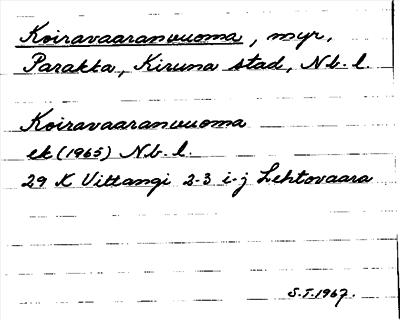 Koiravaaranvuoma, myr,
Parakka, Kiruna stad, N.b. l.
Koiravaaranvuoma
ek (1965) N.b. l.
29 K Vittangi 2-3 i-j Lehtovaara
S.T. 1967.